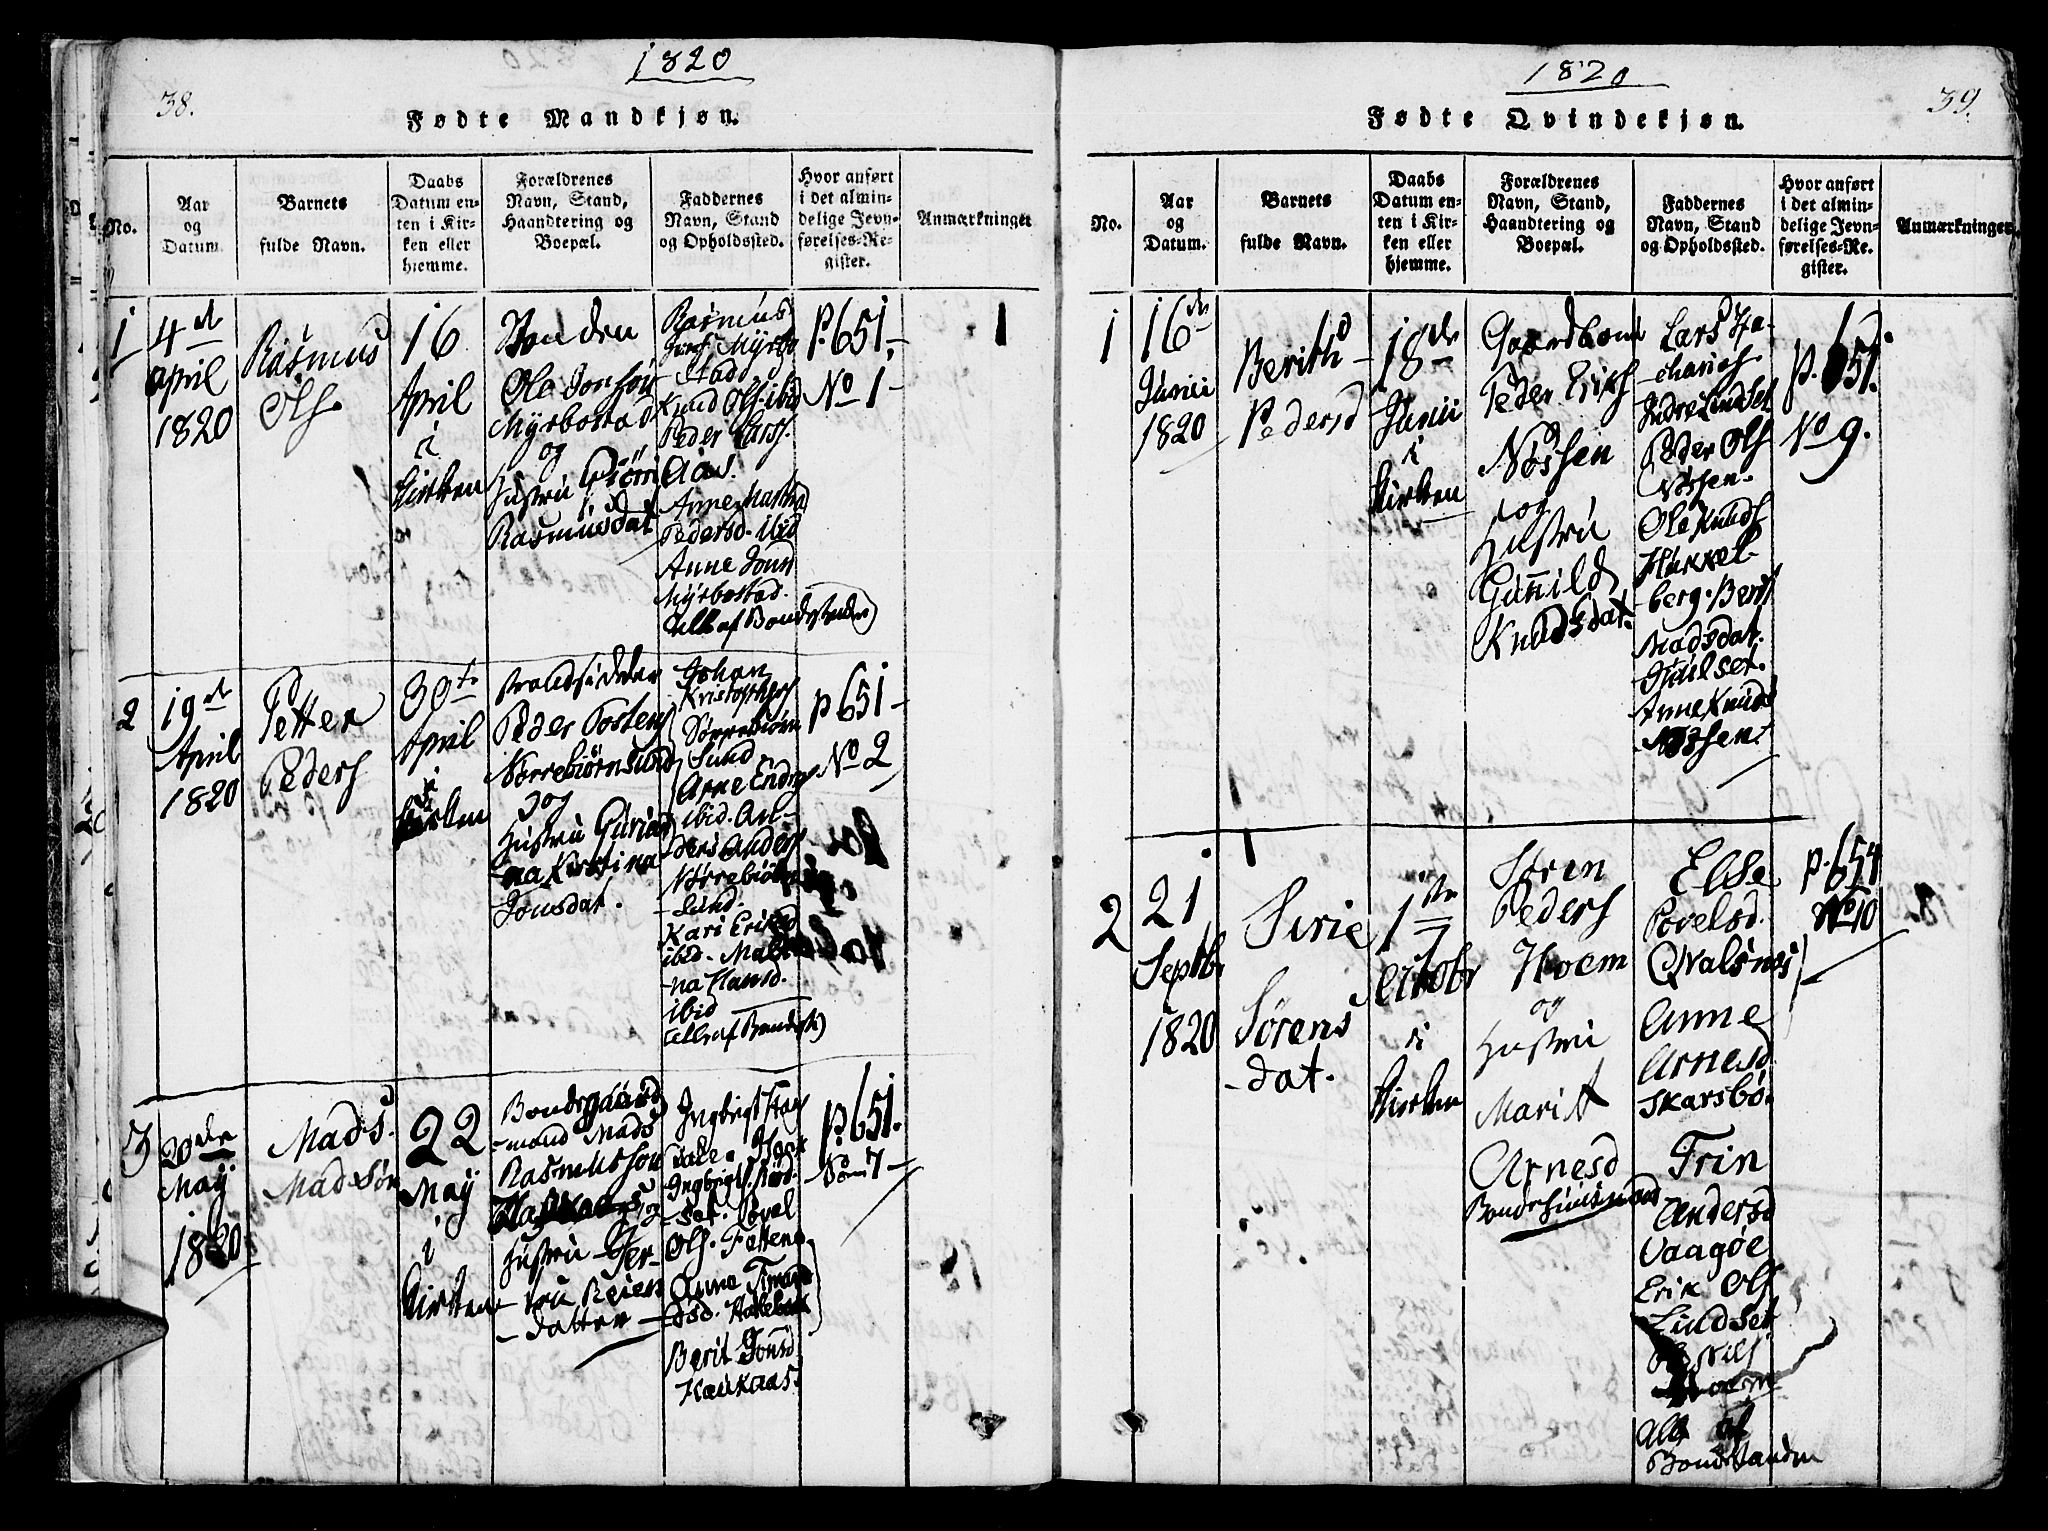 1820
38.
Fødte Mandkjøn.
No.
Aar
og
Datum.
Barnets
fulde Navn.
Daabs
Datum en-
ten i Kir-
ken eller
hjemme.
Forældrenes
Navn, Stand,
Haandtering og
Boepæl.
Faddernes
Navn, Stand
og Opholdssted.
Hvor anført
i det almin-
delige Jevn-
førelses-Re-
gister.
Anmærkninger
1
4de
April
1820
Rasmus
Ols
16
April
i
Kirken
Bonden
Ole Jonsøn
Myrbostad
og
Hustru
Rasmusdat
Rasmus
Myrbo
stad
Knud Ols. ibid
Peder Larss.
Aas.
Anne Martha
Pedersd. ibid
Anne Jonsd
Myrbostad.
alle af Bondestanden
P. 651,
No 1-
1
2
19de
April
1820
Petter
Peders
30te
April
i
Kirken
Strandsidder
Peder Tostens
Nørrebiørnsund
og
Hustru Gurian-
na Kirstina
Jonsdat.
Johan
Kristophers
Nørrebiørn
Sund
Arne Endres
ibid. An-
ders Anders
Nørrebiørn
-sund.
Kari Eriksd
ibid. Male-
na Hansd.
ibid
alle af Bondest.
P 651-
No 2
3
20de
May
1820
Mads.
Madsøn
22
May
i
Kirken
Bondegaard
-mand Mads
Rasmussøn
og
Hustru Ger-
-tru Reiers
-datter
Ingbrigt
Isak
Ingbrigts. Rød-
-set. Povel
Ols. Fættena
Anne
-dsd.
Berit Jonsd
Haukaas
P. 651.
No 7-
1820
39.
Fødte Qvindekjøn.
No.
Aar
og
Datum.
Barnets
fulde Navn.
Daabs
Datum en-
ten i Kir-
ken eller
hjemme.
Forældrenes
Navn, Stand,
Haandtering og
Boepæl.
Faddernes
Navn, Stand
og Opholdssted.
Hvor anført
i det almin-
delige Jevn-
førelses-Re-
gister.
Anmærkninger
1
16de
Junii
1820
Berith
Pedersd
18de
Junii
i
Kirken
Gaardbond
Peder Eriks
Nøssen
og
Hustru
Gunild
Knudsdat.
Lars Za-
-charies
Indre Lindset
Peder Ols
Nøssen.
Ole Knuds
Hakkel
-berg. Berit
Madsdat.
Julset.
Anne Knuds
Nøssen.
P. 651.
No 9.
2
21
Septbr
1820
Sirie
Sørens
-dat.
1ste
Octobr
i
Kirken
Søren
Peders
Hoem
og
Hustru
Marit
Arnesd
Bondehuusmand
Else
Povelsd.
Qvalsnes
Anne
Arnesd
Skarsbø.
Trin
Andersd
Vaagøe
Erik Ols
Lindset
Nils
Hoem
Alle af
Bondestanden
P. 654
No 10